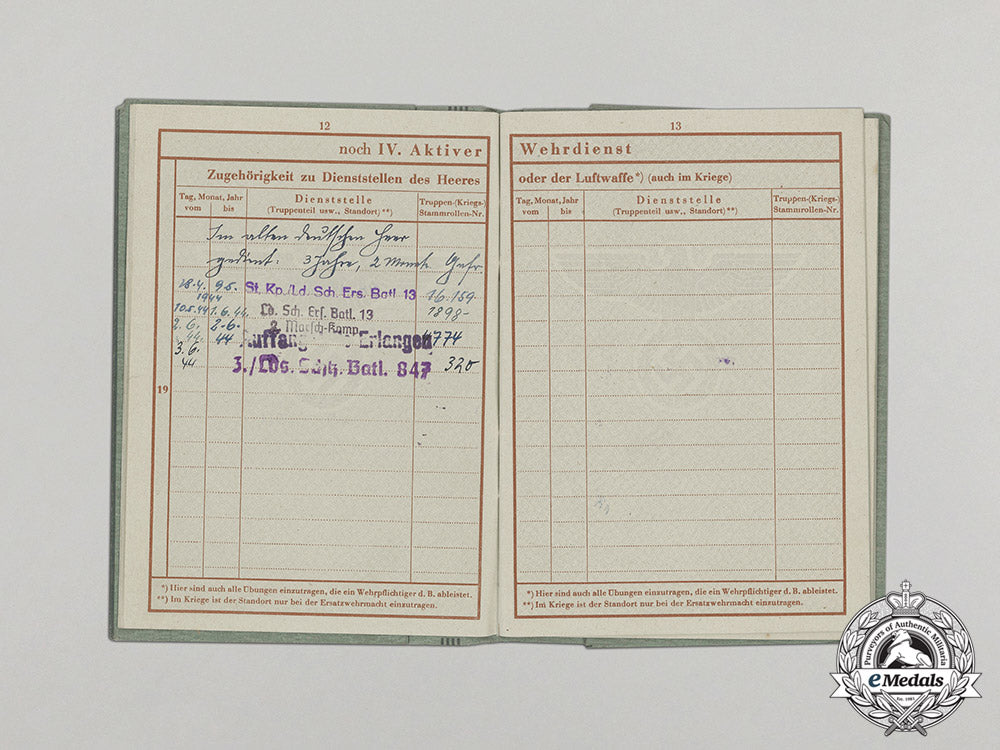 12
noch IV. Aktiver
Zugehörigkeit zu Dienststellen des Heeres
Tag, Monat, Jahr
vom bis
Dienststelle
(Truppenteil usw., Standort)**)
Truppen-(Kriegs-)
Stammrollen-Nr.
Im alten deutschen Heer
gedient: 3 Jahre, 2 Monate Gefr.
28.4. 9.5. St. Kp./Ld. Sch. Ers. Batl. 13 16159
1944
10.5.44 1.6.44 Ld. Sch. Ers. Batl. 13 1898-
2. Marsch-Komp.
2.6. 2.6. Erlangen 4774
44. 44
3.6. 3./Lds. Schtz. Batl. 847 320
44
19
*) Hier sind auch alle Übungen einzutragen, die ein Wehrpflichtiger d. B. ableistet.
**) Im Kriege ist der Standort nur bei der Ersatzwehrmacht einzutragen.
13
Wehrdienst
oder der Luftwaffe*) (auch im Kriege)
Tag, Monat, Jahr
vom bis
Dienststelle
(Truppenteil usw., Standort)**)
Truppen-(Kriegs-)
Stammrollen-Nr.
*) Hier sind auch alle Übungen einzutragen, die ein Wehrpflichtiger d. B. ableistet.
**) Im Kriege ist der Standort nur bei der Ersatzwehrmacht einzutragen.
Purveyors of Authentic Militaria
eMedals
Est. 1981